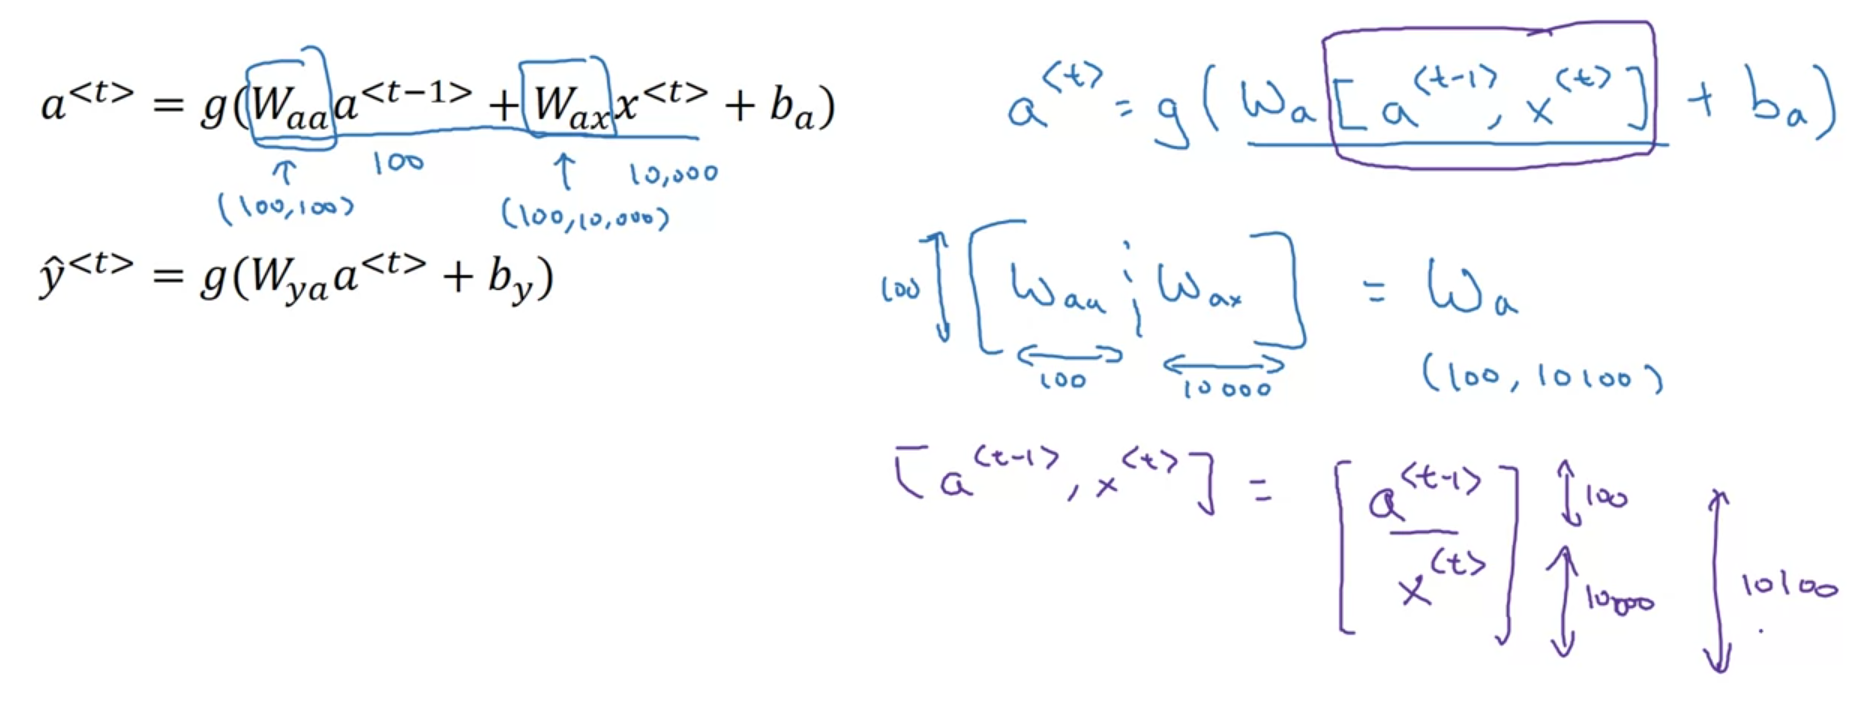 a<t> = g(Waa a<t−1> + Wax x<t> + ba)
100
10,000
(100,100)
(100,10,000)
ŷ<t> = g(Wya a<t> + by)
a<t> = g(Wa [a<t-1>, x<t>] + ba)
100 [Waa ¦ Wax] = Wa
100
10000
(100, 10100)
[a<t-1>, x<t>] = [a<t-1>
x<t>]
100
10000
10100